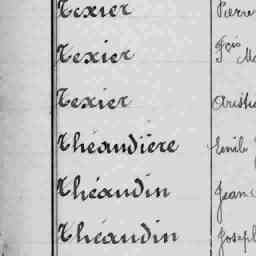 Texier Pierre
Texier Fçois
Texier
Théaudière Emile
Théaudin Jean
Théaudin Joseph